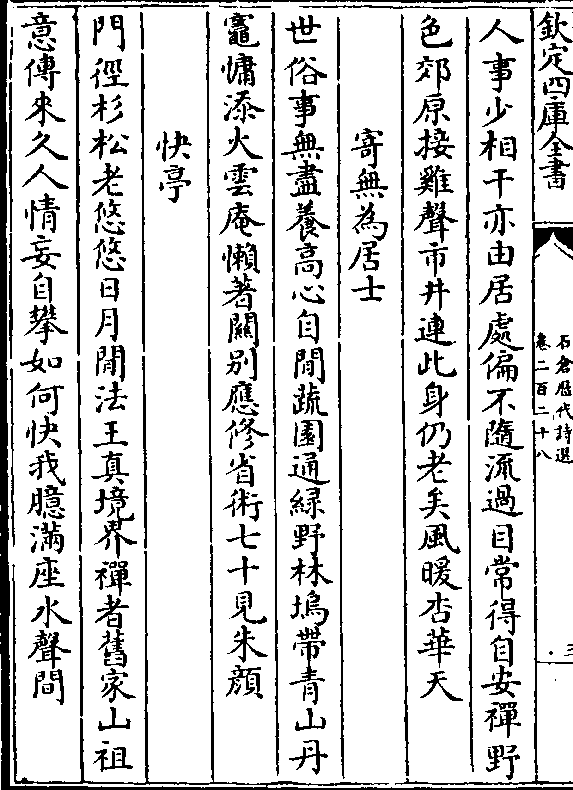 欽定四庫全書
石倉歷代詩選
卷二百二十八
三
人事少相干亦由居處偏不隨流過目常得自安禪野
色郊原接雞聲市井連此身仍老矣風暖杏華天
寄無為居士
世俗事無盡養高心自閒蔬園通緑野林塢帶青山丹
竈慵添火雲庵懶著關别應修省術七十見朱顔
快亭
門徑杉松老悠悠日月閒法王真境界禪者舊家山祖
意傳來久人情妄自攀如何快我臆滿座水聲間